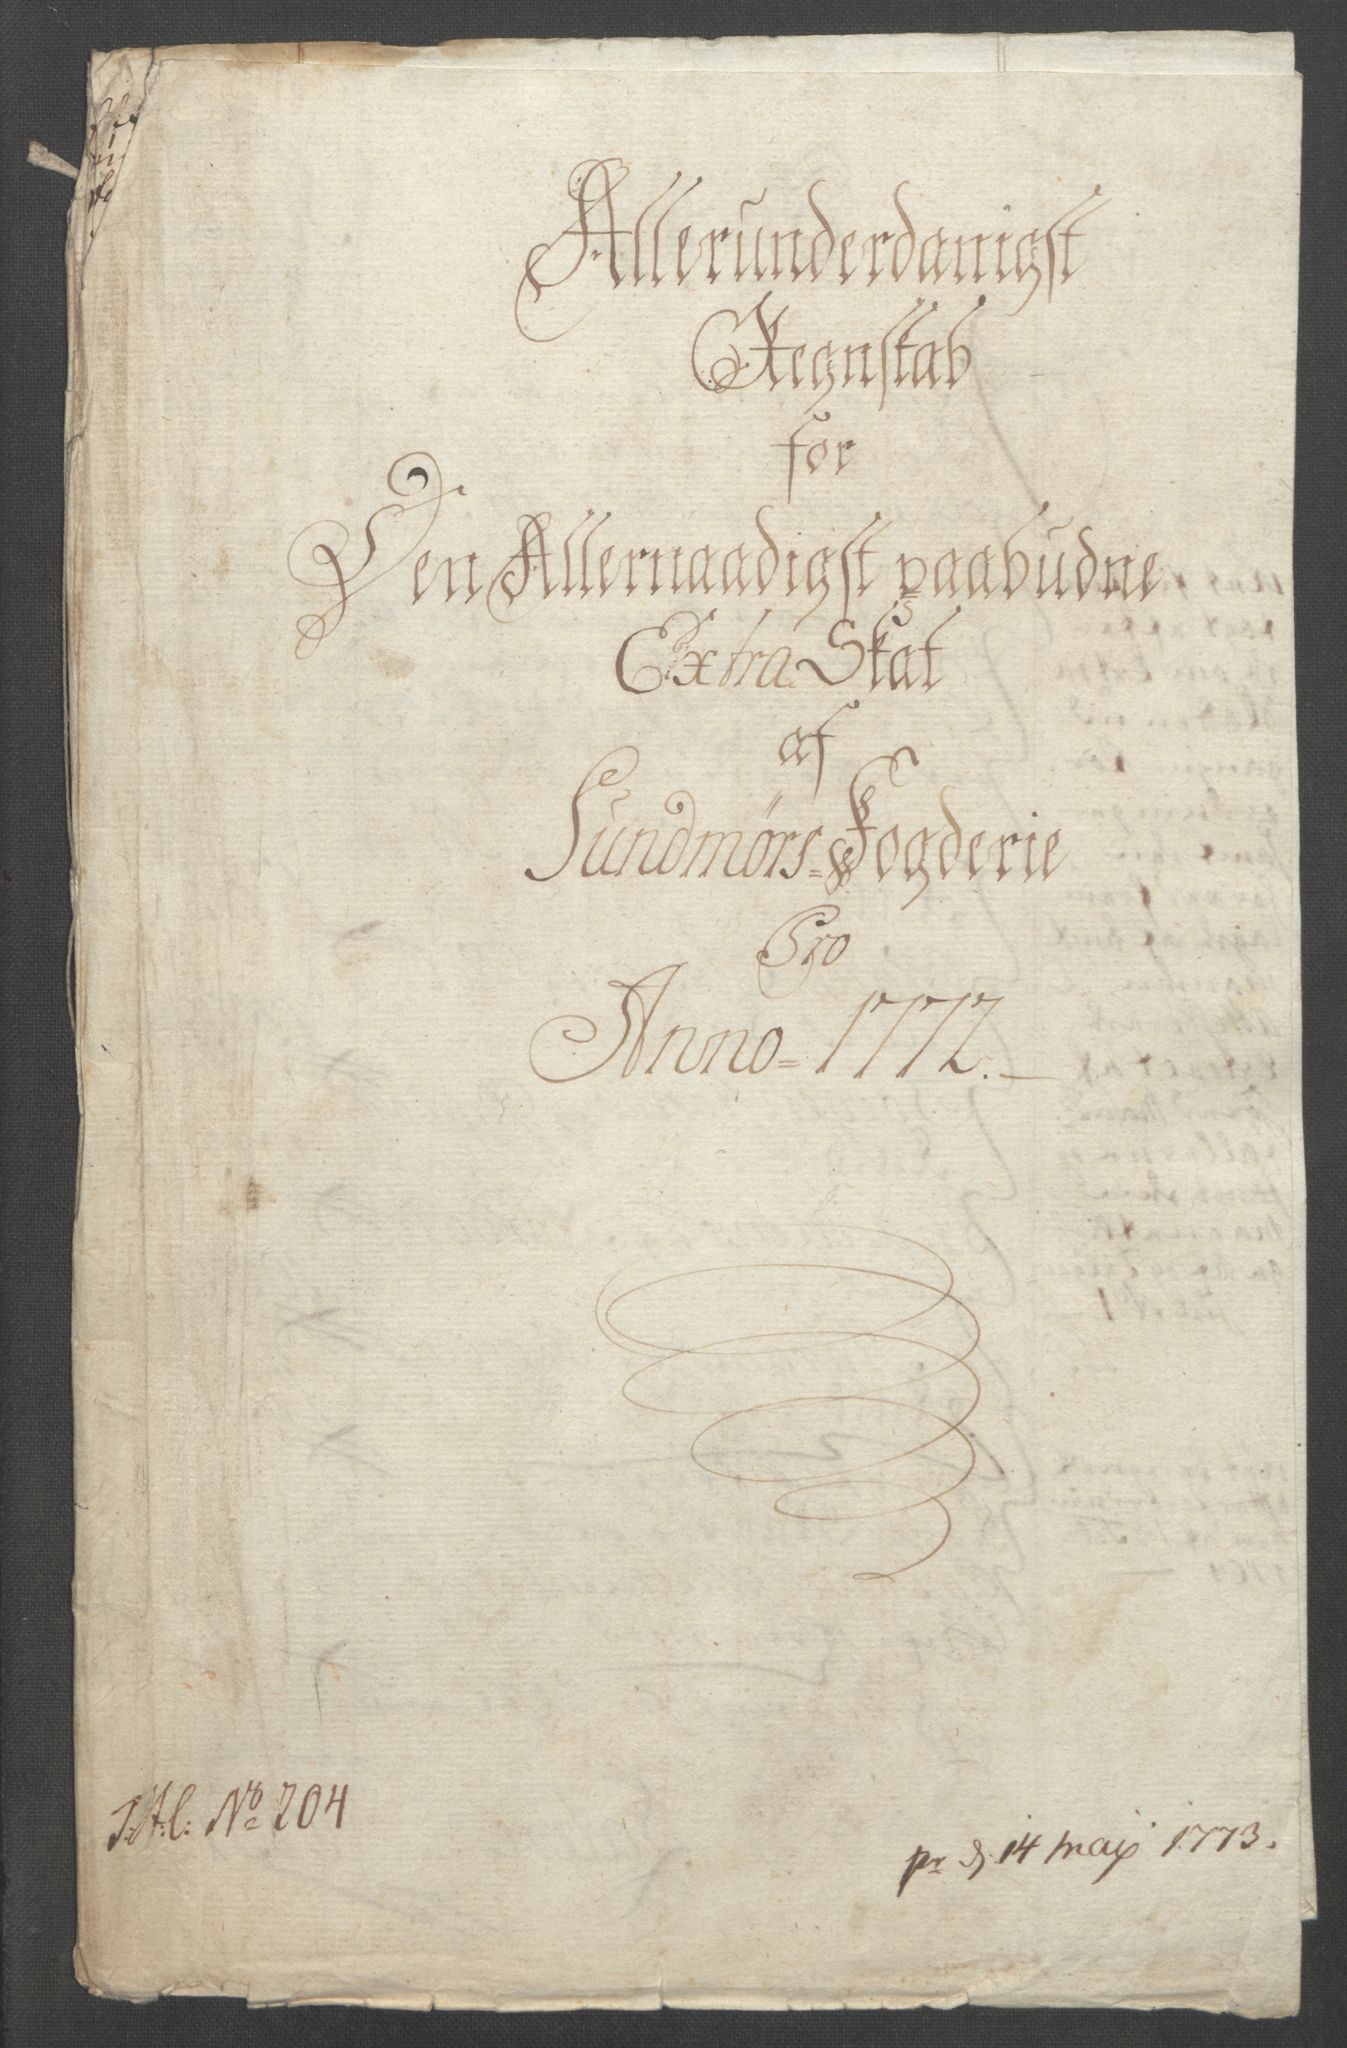 Allerunderdanigst
Regnskab
for
Den Allernaadigst paabudne
Extra Skat
af
Sundmørs= Fogderie
Pro
Anno= 1772.
No 204
pr d. 14 maji 1773.